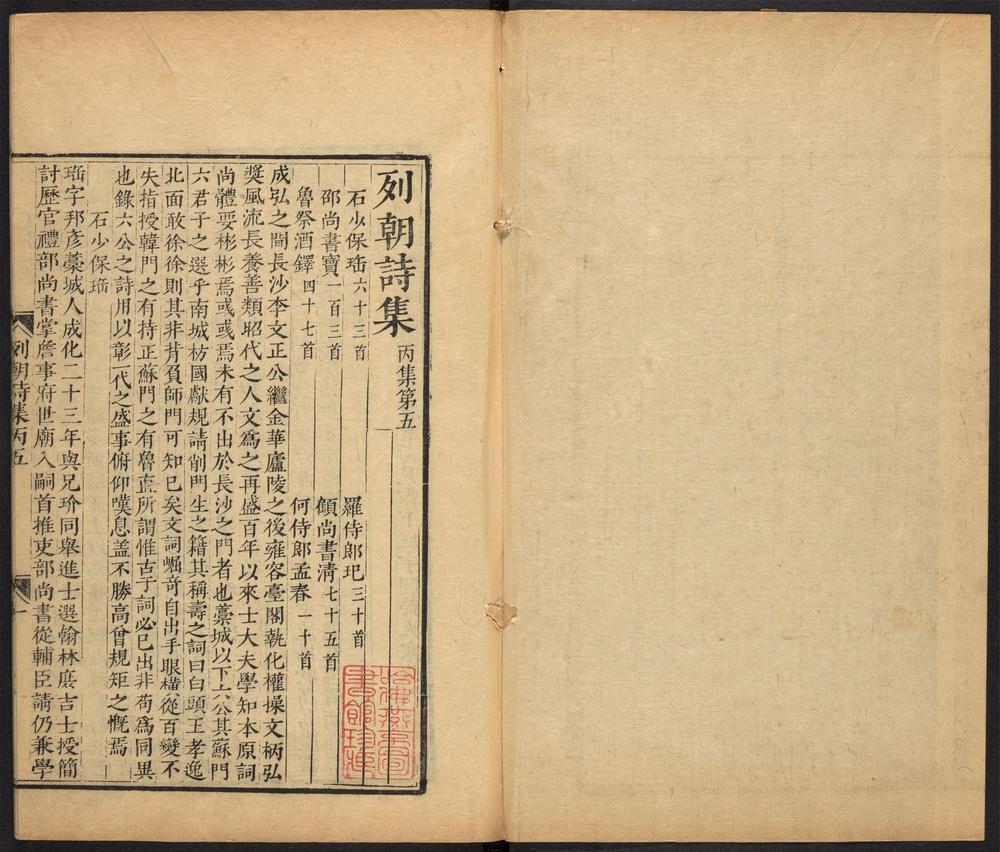 列朝詩集 丙集第五
石少保珤六十三首 羅侍郎玘三十首
邵尚書寶一百三首 顧尚書清七十五首
魯祭酒鐸四十七首 何侍郎孟春一十首
成弘之間長沙李文正公繼金華廬陵之後雍容臺閣執化權操文柄弘
獎風流長養善類昭代之人文爲之再盛百年以來士大夫學知本原詞
尚體要彬彬焉彧彧焉未有不出於長沙之門者也藁城以下六公其蘇門
六君子之選乎南城枋國獻規請削門生之籍其稱壽之詞曰白頭王孝逸
北面敢徐徐則其非背負師門可知已矣文詞崛奇自出手眼橫從百變不
失指授韓門之有持正蘇門之有魯直所謂惟古于詞必已出非苟爲同異
也錄六公之詩用以彰一代之盛事俯仰嘆息盖不勝高曾規矩之慨焉
石少保珤
珤字邦彥藁城人成化二十三年與兄玠同舉進士選翰林庶吉士授簡
討歷官禮部尚書掌詹事府世廟入嗣首推吏部尚書從輔臣請仍兼學
列朝詩集丙五 一
哈佛燕京圖書館珍藏